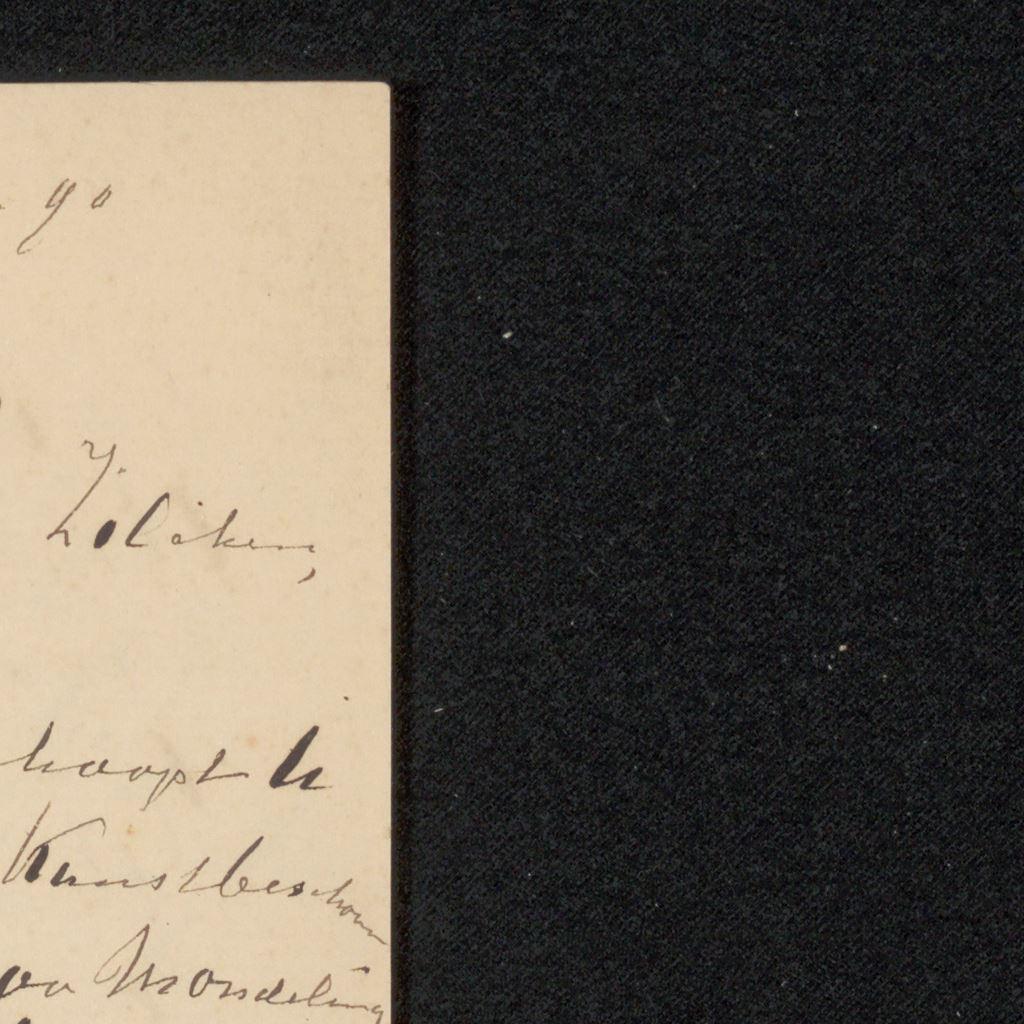 90
Zilcken,
hoopt U
Kunstbeschou
Mondeling